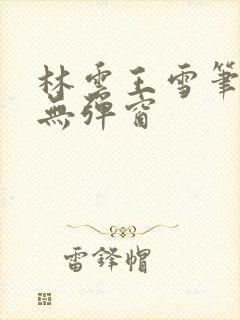 林雲王雪筆
無彈窗
雷鋒帽